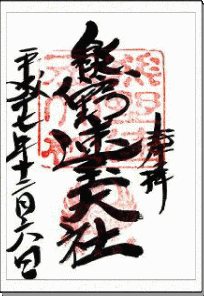 奉拝
熊野速玉大社
平成十七年十二月六日